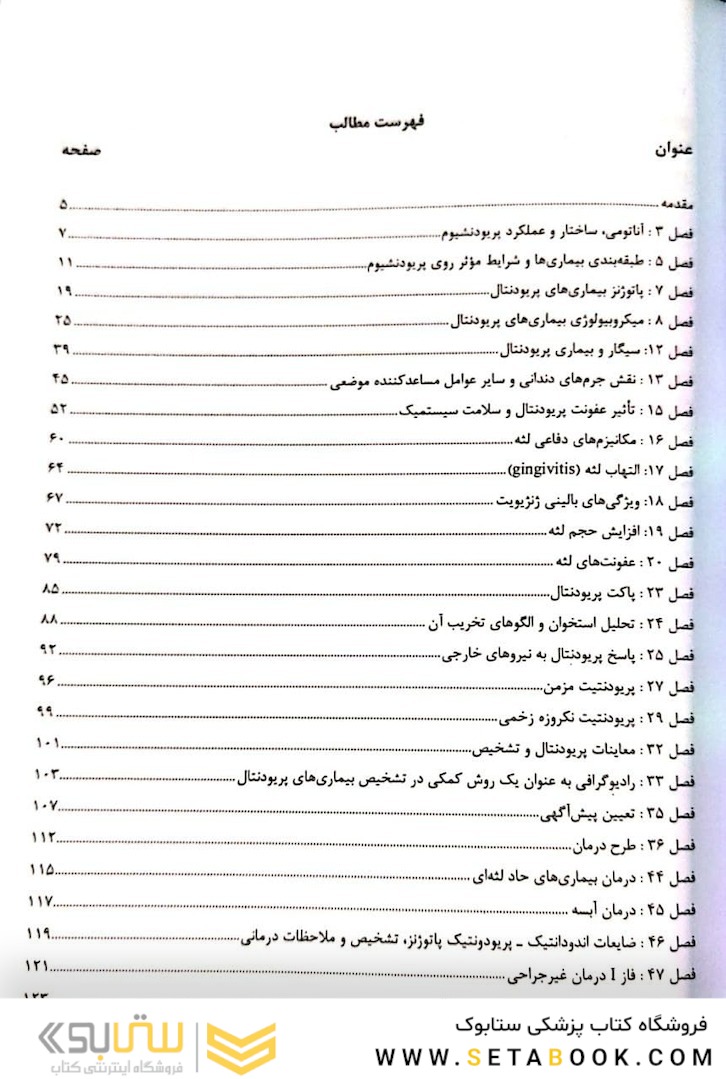 فهرست مطالب
عنوان صفحه
مقدمه ........ ۵
فصل ۳ : آناتومی، ساختار و عملکرد پریودنشیوم ........ ۷
فصل ۵ : طبقه‌بندی بیماری‌ها و شرایط مؤثر روی پریودنشیوم ........ ۱۱
فصل ۷ : پاتوژنز بیماری‌های پریودنتال ........ ۱۹
فصل ۸ : میکروبیولوژی بیماری‌های پریودنتال ........ ۲۵
فصل ۱۲: سیگار و بیماری پریودنتال ........ ۳۹
فصل ۱۳ : نقش جرم‌های دندانی و سایر عوامل مساعدکننده موضعی ........ ۴۵
فصل ۱۵ : تأثیر عفونت پریودنتال و سلامت سیستمیک ........ ۵۲
فصل ۱۶ : مکانیزم‌های دفاعی لثه ........ ۶۰
فصل ۱۷: التهاب لثه (gingivitis) ........ ۶۴
فصل ۱۸: ویژگی‌های بالینی ژنژیویت ........ ۶۷
فصل ۱۹: افزایش حجم لثه ........ ۷۲
فصل ۲۰ : عفونت‌های لثه ........ ۷۹
فصل ۲۳ : پاکت پریودنتال ........ ۸۵
فصل ۲۴ : تحلیل استخوان و الگوهای تخریب آن ........ ۸۸
فصل ۲۵ : پاسخ پریودنتال به نیروهای خارجی ........ ۹۲
فصل ۲۷ : پریودنتیت مزمن ........ ۹۶
فصل ۲۹ : پریودنتیت نکروزه زخمی ........ ۹۹
فصل ۳۲ : معاینات پریودنتال و تشخیص ........ ۱۰۱
فصل ۳۳ : رادیوگرافی به عنوان یک روش کمکی در تشخیص بیماری‌های پریودنتال ........ ۱۰۳
فصل ۳۵ : تعیین پیش‌آگهی ........ ۱۰۷
فصل ۳۶ : طرح درمان ........ ۱۱۲
فصل ۴۴ : درمان بیماری‌های حاد لثه‌ای ........ ۱۱۵
فصل ۴۵ : درمان آبسه ........ ۱۱۷
فصل ۴۶ : ضایعات اندودانتیک ـ پریودونتیک پاتوژنز، تشخیص و ملاحظات درمانی ........ ۱۱۹
فصل ۴۷ : فاز I درمان غیرجراحی ........ ۱۲۱
۱۲۳
فروشگاه کتاب پزشکی ستابوک
WWW.SETABOOK.COM
ستابوک
فروشگاه اینترنتی کتاب